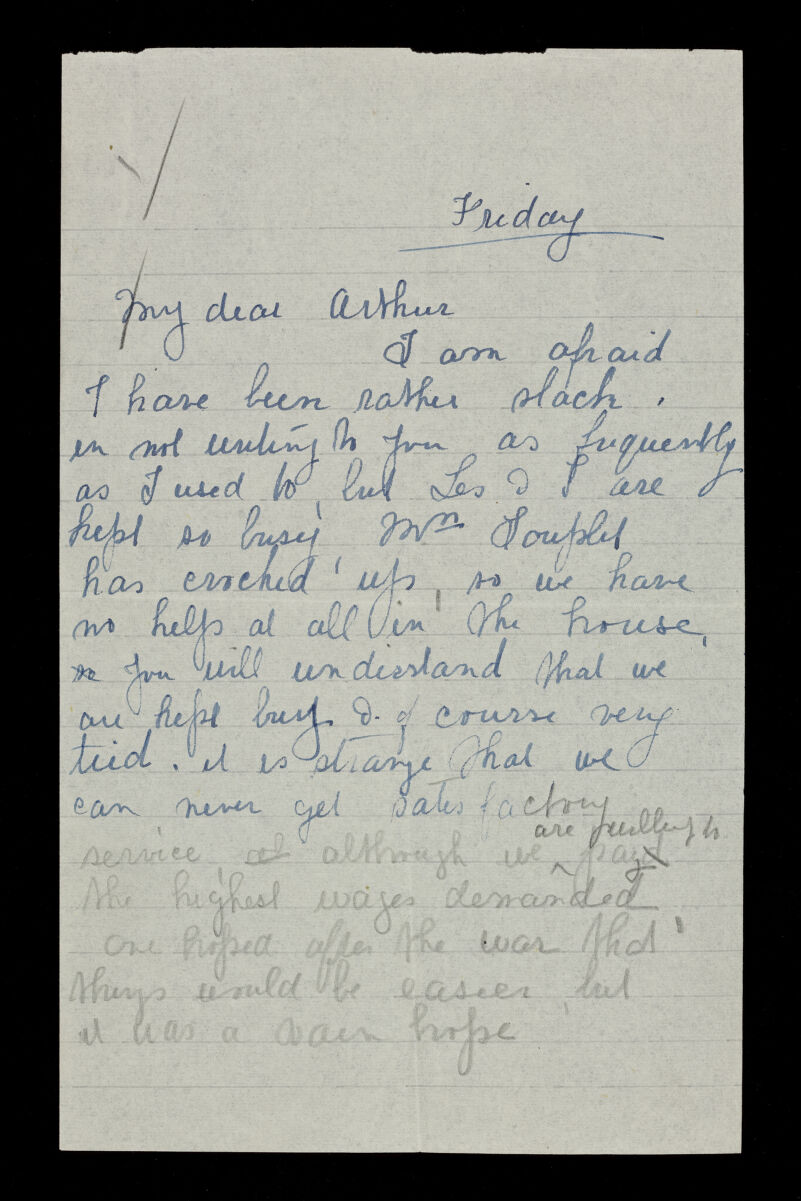 Friday
My dear Arthur
I am afraid
I have been rather slack.
in not writing to you as frequently
as I used to, but Les & I are
kept so busy Mrs
has crocked up, so we have
no help at all in the house,
so you will understand that we
are kept busy & of course very
tired. it is strange that we
can never get satisfactory
are willing to
service, at although we pay
the highest wages demanded
one hoped after the war that
things would be easier, but
it was a vain hope